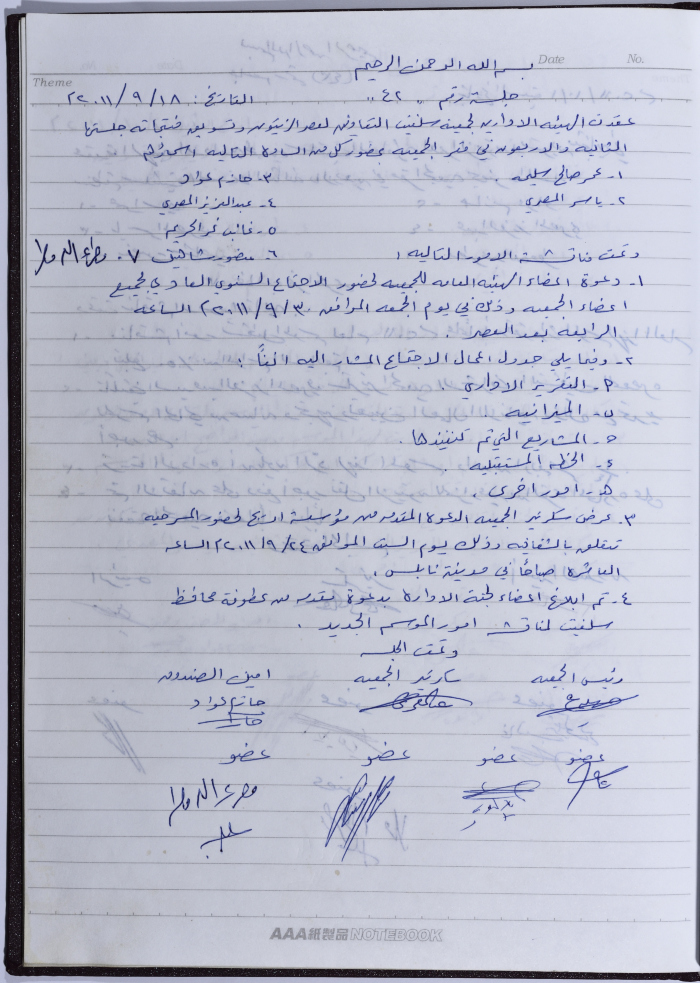 Theme Date No.
بسم الله الرحمن الرحيم
جلسة رقم "٤٢" التاريخ: ٢٠١١/٩/١٨
عقدت الهيئة الادارية لجمعية سلفيت التعاونية لعصر الزيتون وتسويق منتجاته جلستها
الثانية والاربعون في مقر الجمعية بحضور كل من السادة التالية اسماؤهم
١- عمر صالح سليمه . ٣- حازم عواد
٢- ياسر المصري ٤- عبد العزيز المصري
٥- غانب عبد الكريم
٦- منصور شاهين ٧-
وتمت مناقشة الامور التالية :
١- دعوة اعضاء الهيئة العامة للجمعية لحضور الاجتماع السنوي العادي لجميع
اعضاء الجمعية وذلك في يوم الجمعة الموافق ٢٠١١/٩/٣٠ الساعة
الرابعة بعد العصر .
٢- وفيما يلي جدول اعمال الاجتماع المشار اليه آنفاً :
أ- التقرير الاداري
ب- الميزانية
ج- المشاريع التي تم تنفيذها .
د- الخطة المستقبلية .
هـ- امور اخرى .
٣- عرض سكرتير الجمعية الدعوة المقدمة من مؤسسة لحضور المسرحية
تتعلق بالشفافية وذلك يوم السبت الموافق ٢٠١١/٩/٢٤ الساعة
العاشرة صباحاً في مدينة نابلس .
٤- تم ابلاغ اعضاء لجنة الادارة بدعوة مقدمة من عطوفة محافظ
سلفيت لمناقشة امور الموسم الجديد .
وتمت الجلسة
رئيس الجمعية سكرتير الجمعية امين الصندوق
حازم عواد
عضو عضو عضو عضو
AAA紙製品NOTEBOOK